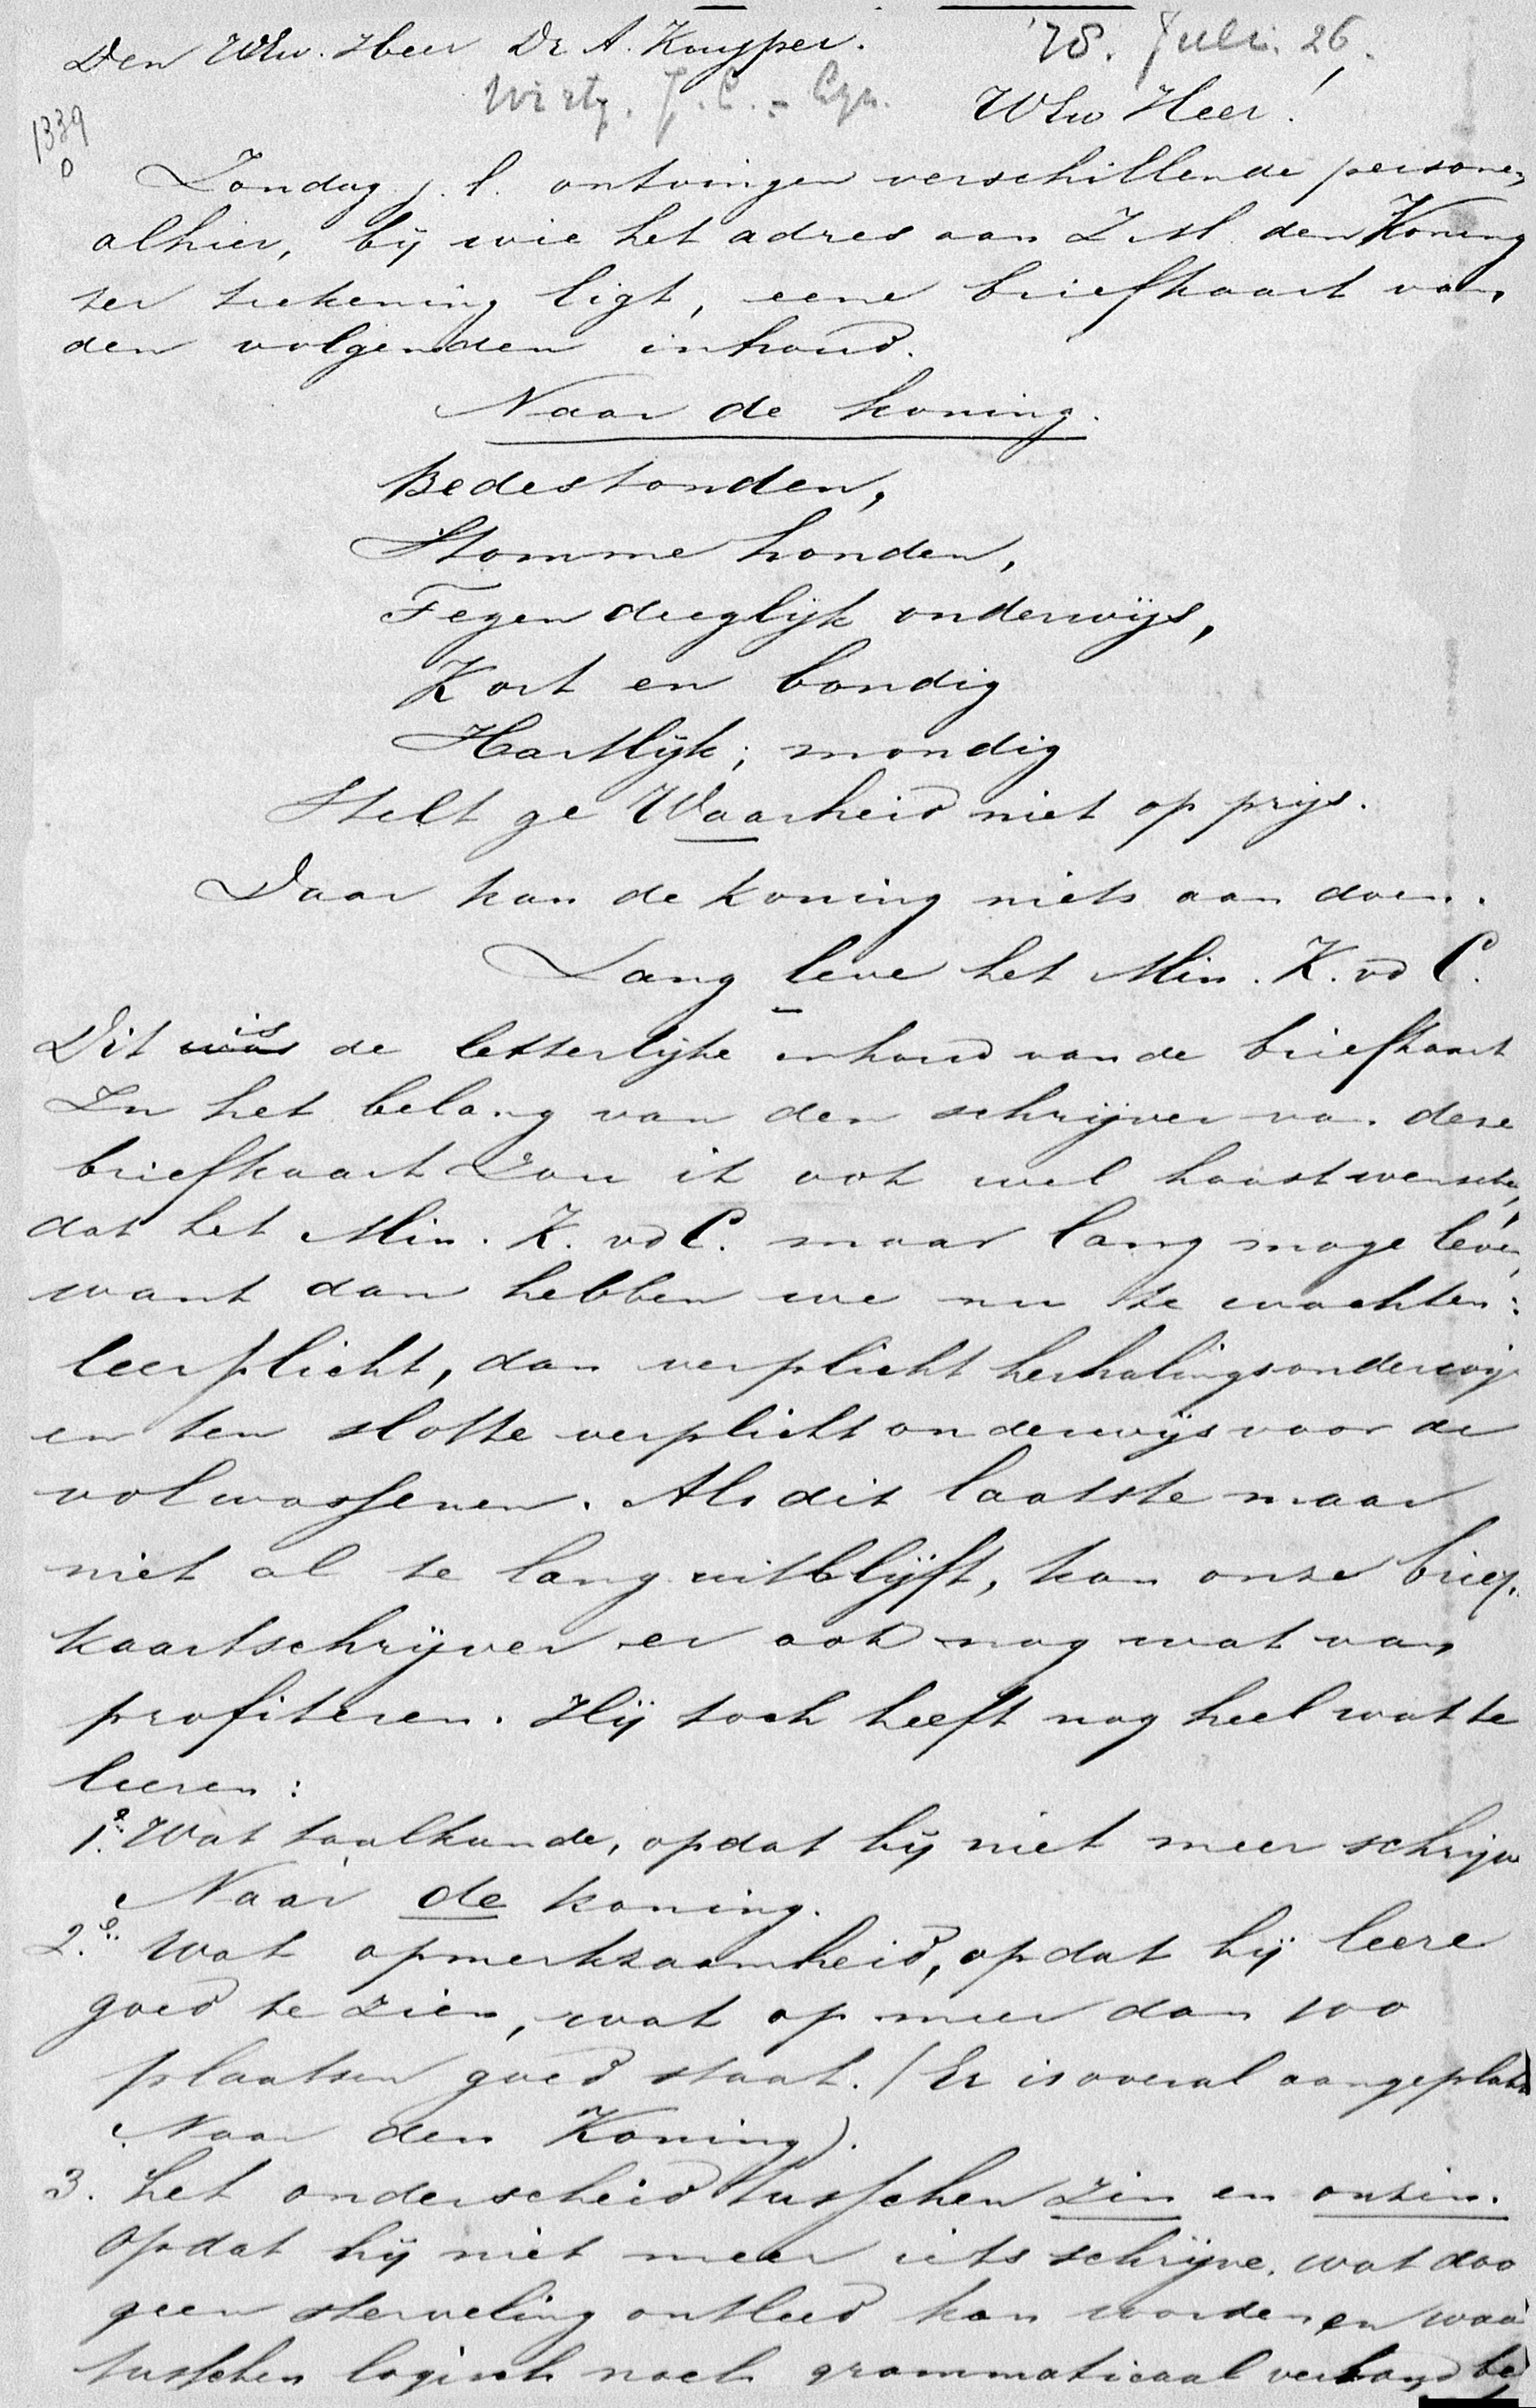 Den WEw. Heer Dr A. Kuyper. '78. Juli. 26.
Wirtz. J. C. - Czn.
WEw Heer!
1339
0
Zondag j. l. ontvingen verschillende personen
alhier, bij wie het adres aan Z M. den Koning
ter teekening ligt, eene briefkaart van
den volgenden inhoud.
Naar de koning.
Bedestonden,
Stomme honden,
Tegen deeglijk onderwijs,
Kort en bondig
Hartlijk; mondig
Stelt ge Waarheid niet op prijs.
Daar kan de koning niets aan doen.
Lang leve het Min. K. vd C.
Dit was is de letterlijke inhoud van de briefkaart
In het belang van den schrijver van deze
briefkaart zou ik ook wel haast wenschen,
dat het Min. K. vd C. maar lang moge leven,
want dan hebben we nu te wachten:
leerplicht, dan verplicht herhalingsonderwijs
en ten slotte verplicht onderwijs voor de
volwassenen. Als dit laatste maar
niet al te lang uitblijft, kan onze brief-
kaartschrijver er ook nog wat van
profiteren. Hij toch heeft nog heel wat te
leeren:
1e. Wat taalkunde, opdat hij niet meer schrijve
Naar de koning.
2e. Wat opmerkzaamheid, opdat hij leere
goed te zien, wat op meer dan 100
plaatsen goed staat. (Er is overal aangeplakt
Naar den Koning).
3. het onderscheid tusschen zin en onzin.
opdat hij niet meer iets schrijve, wat door
geen sterveling ontleed kan worden en waar
tusschen logisch noch grammaticaal verband be